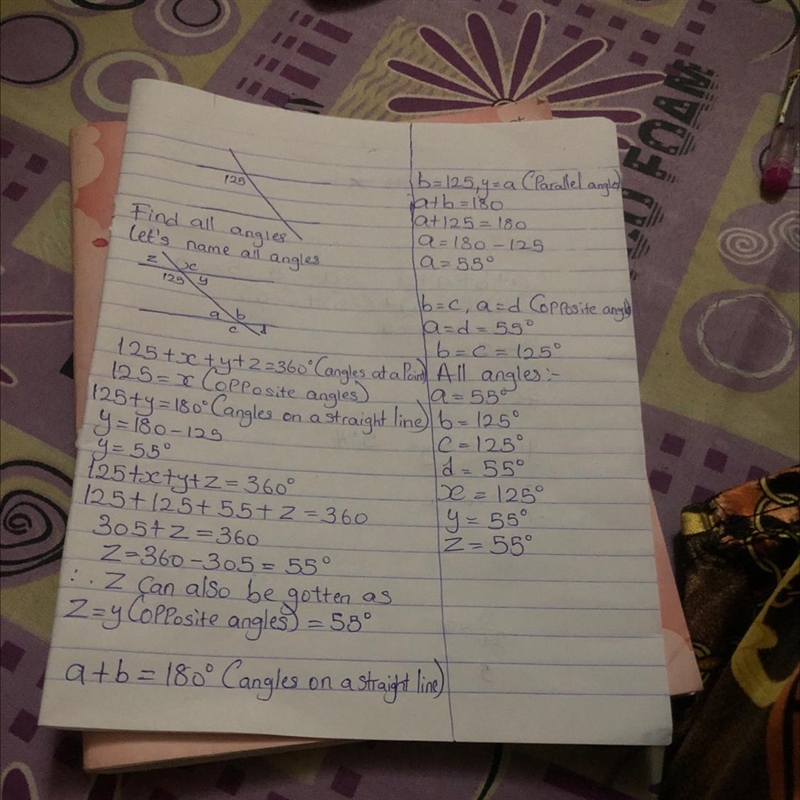 125
Find all angles
Let's name all angles
z x
125 y
a b
c d
125+x+y+z=360° (angles at a Point)
125=x (opposite angles)
125+y=180° (angles on a straight line)
y=180-125
y=55°
125+x+y+z=360°
125+125+55+z=360
305+z=360
z=360-305=55°
∴ z can also be gotten as
z=y (opposite angles) = 55°
a+b=180° (angles on a straight line)
b=125, y=a (Parallel angles)
a+b=180
a+125=180
a=180-125
a=55°
b=c, a=d (opposite angle
a=d=55°
b=c=125°
All angles:-
a=55°
b=125°
c=125°
d=55°
x=125°
y=55°
z=55°
FOAM